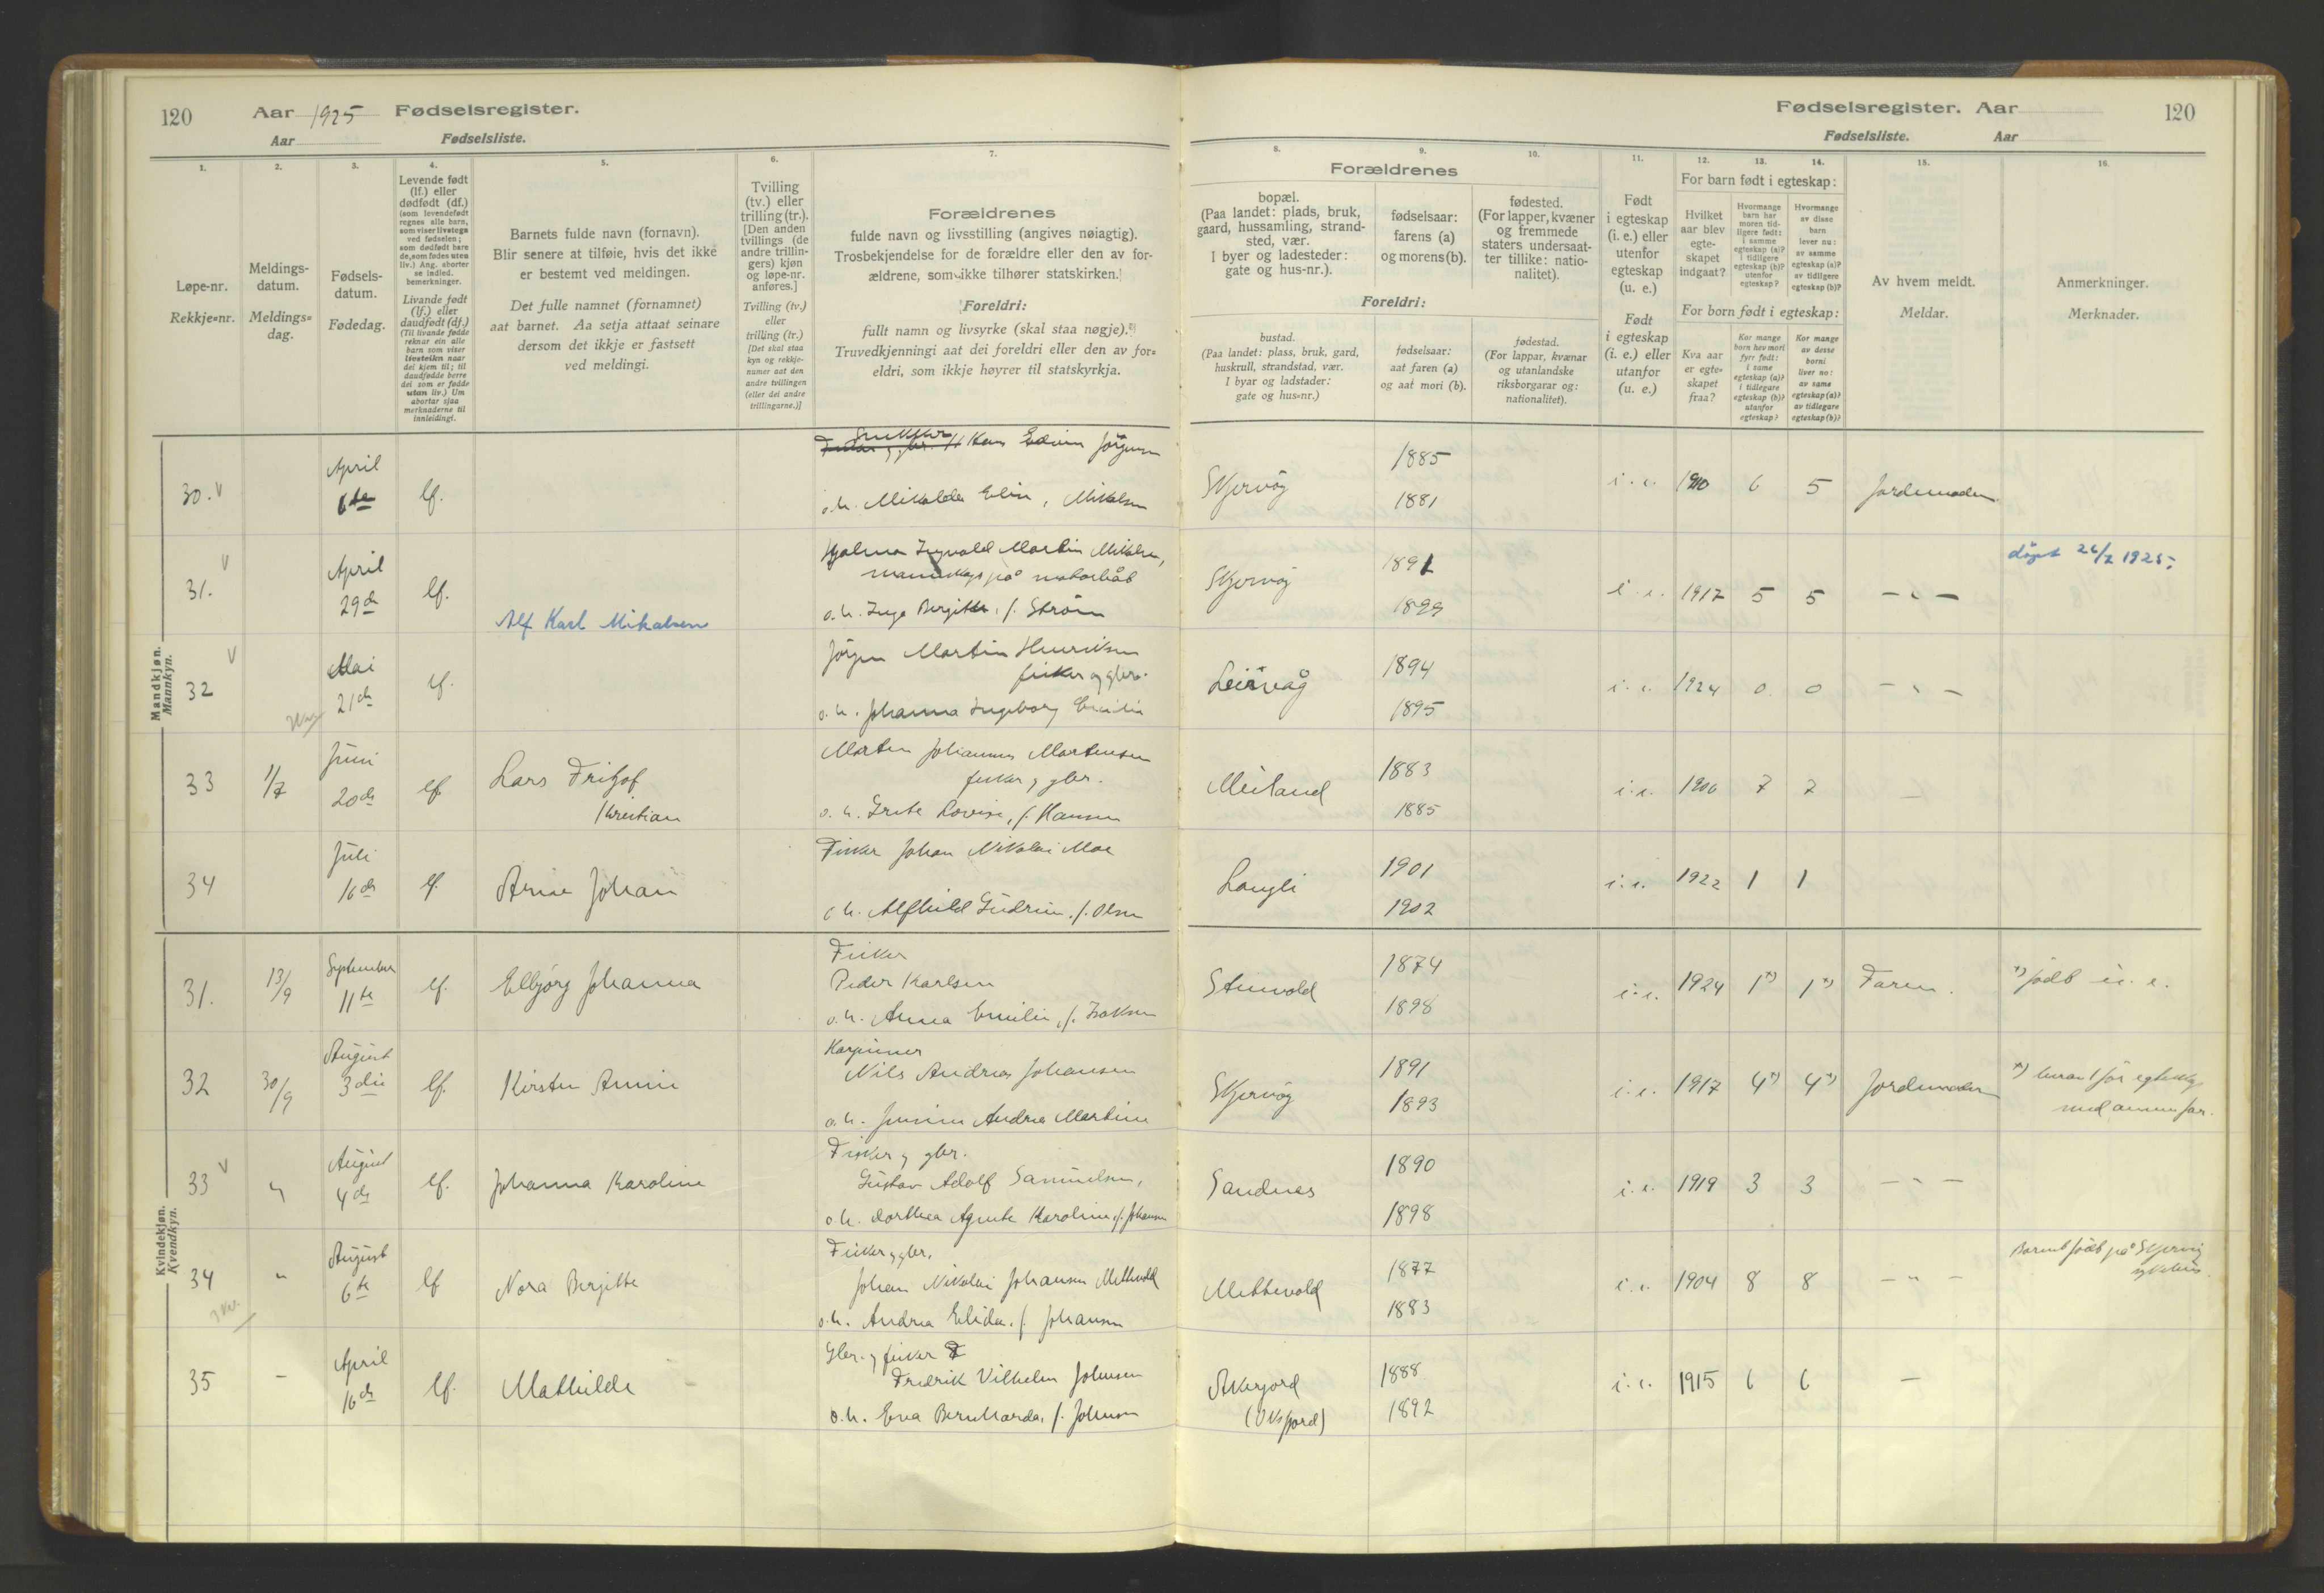 120
Aar 1925 Fødselsregister.
Aar Fødselsliste.
1.
2.
3.
4.
5.
6.
7.
Løpe-nr.
Rekkje=nr.
Meldings-
datum.
Meldings=
dag.
Fødsels-
datum.
Fødedag.
Levende født
(lf.) eller
dødfødt (df.)
(som levendefødt
regnes alle barn,
som viser livstegn
ved fødselen;
som dødfødt bare
de, som fødes uten
liv.) Ang. aborter
se indled.
bemerkninger.
Livande født
(lf.) eller
daudfødt (df.)
(Til livande fødde
reknar ein alle
barn som viser
livsteikn naar
dei kjem til; til
daudfødde berre
dei som er fødde
utan liv.) Um
abortar sjaa
merknaderne til
innleidingi.
Barnets fulde navn (fornavn).
Blir senere at tilføie, hvis det ikke
er bestemt ved meldingen.
Det fulle namnet (fornamnet)
aat barnet. Aa setja attaat seinare
dersom det ikkje er fastsett
ved meldingi.
Tvilling
(tv.) eller
trilling (tr.).
[Den anden
tvillings (de
andre trillin-
gers) kjøn
og løpe-nr.
anføres.]
Tvilling (tv.)
eller
trilling (tr.)
[Det skal staa
kyn og rekkje-
numer aat den
andre tvillingen
(eller dei andre
trillingarne.)]
Forældrenes
fulde navn og livsstilling (angives nøiagtig).
Trosbekjendelse for de forældre eller den av for-
ældrene, som ikke tilhører statskirken.
Foreldri:
fullt namn og livsyrke (skal staa nøgje).
Truvedkjenningi aat dei foreldri eller den av for=
eldri, som ikkje høyrer til statskyrkja.
Mandkjøn.
Mannkyn.
30. V
April
6te
lf.
Snekker
Hans Edvin Jörgensen
o. h. Mikalda Elin, Mikalsen
31. V
April
29de
lf.
Alf Karl Mikalsen
Hjalmar Ingvald Martin Mikalsen,
mannskap på motorbåt
o. h. Inga Bergitte, f. Ström
32 V
Mai
21de
lf.
Jörgen Martin Henriksen
fisker og gbr.
o. h. Johanna Ingeborg Emilie
33
1/7
Juni
20de
lf.
Lars Fritjof
Kristian
Morten Johannes Mortensen
fisker og gbr.
o. h. Grete Lovise, f. Hansen
34
Juli
16de
lf.
Arne Johan
Fisker Johan Nikolai Moe
o. h. Alfhild Gudrun, f. Olsen
Kvindekjøn.
Kvendkyn.
31.
13/9
September
11te
lf.
Elbjørg Johanna
Fisker
Peder Karlsen
o. h. Anna Emilie, f. Isaksen
32
30/9
August
3die
lf.
Kirsten Annie
Nils Andreas Johansen
o. h. Jensine Andrea Martine
33 V
"
August
4de
lf.
Johanna Karoline
Fisker og gbr.
Gustav Adolf Samuelsen,
o. h. Dorthea Agnete Karoline, f. Johansen
34
"
August
6te
lf
Nora Bergitte
Fisker og gbr.
Johan Nikolai Johansen Mettevold
o. h. Andrea Elida, f. Johansen
35
–
April
16de
lf.
Mathilde
Gbr. og fisker
Fredrik Vilhelm Johnsen
o. h. Eva Bernharda, f. Johnsen
Fødselsregister. Aar
120
Fødselsliste. Aar
8.
9.
10.
11.
12.
13.
14.
15.
16.
Forældrenes
bopæl.
(Paa landet: plads, bruk,
gaard, hussamling, strand-
sted, vær.
I byer og ladesteder:
gate og hus-nr.).
fødselsaar:
farens (a)
og morens (b).
fødested.
(For lapper, kvæner
og fremmede
staters undersaat-
ter tillike: natio-
nalitet).
Foreldri:
bustad.
(Paa landet: plass, bruk, gard,
huskrull, strandstad, vær.
I byar og ladstader:
gate og hus=nr.)
fødselsaar:
aat faren (a)
og aat mori (b).
fødestad.
(For lappar, kvænar
og utanlandske
riksborgarar og:
nationalitet).
Født
i egteskap
(i. e.) eller
utenfor
egteskap
(u. e.)
Født
i egteskap
(i. e.) eller
utanfor
(u. e.)
For barn født i egteskap:
Hvilket
aar blev
egte-
skapet
indgaat?
Hvormange
barn har
moren tid-
ligere født:
i samme
egteskap (a)?
i tidligere
egteskap (b)?
utenfor
egteskap?
Hvormange
av disse
barn
lever nu:
av samme
egteskap (a)?
av tidligere
egteskap (b)?
For born født i egteskap:
Kva aar
er egte=
skapet
fraa?
Kor mange
born hev mori
fyrr født:
i same
egteskap (a)?
i tidlegare
egteskap (b)?
utanfor
egteskap?
Kor mange
av desse
borni
liver no:
av same
egteskap (a)?
av tidlegare
egteskap (b)?
Av hvem meldt.
Meldar.
Anmerkninger.
Merknader.
Skjervöy
1885
1881
i. e.
1910
6
5
Jordmoderen
Skjervöy
1891
1899
i. e.
1917
5
5
– " –
döpt 26/7 1925.
Leirvåg
1894
1895
i. e.
1924
0.
0
– " –
Meiland
1883
1885
i. e.
1906
7
7
–
Langli
1901
1902
i. e.
1922
1
1
Stenvold
1874
1898
i. e.
1924
1*)
1*)
Faren.
*) födt u. e.
Skjervöy
1891
1893
i. e.
1917
4*)
4*)
Jordmoder
*) herav 1 för egteskap
med annen far.
Sandnes
1890
1898
i. e.
1919
3
3
– " –
Mettevold
1877
1883
i. e.
1904
8
8
– " –
Barnet födt på Skjervöy
sykehus.
Akerjord
(Oksfjord)
1888
1892
i. e.
1915
6
6
–